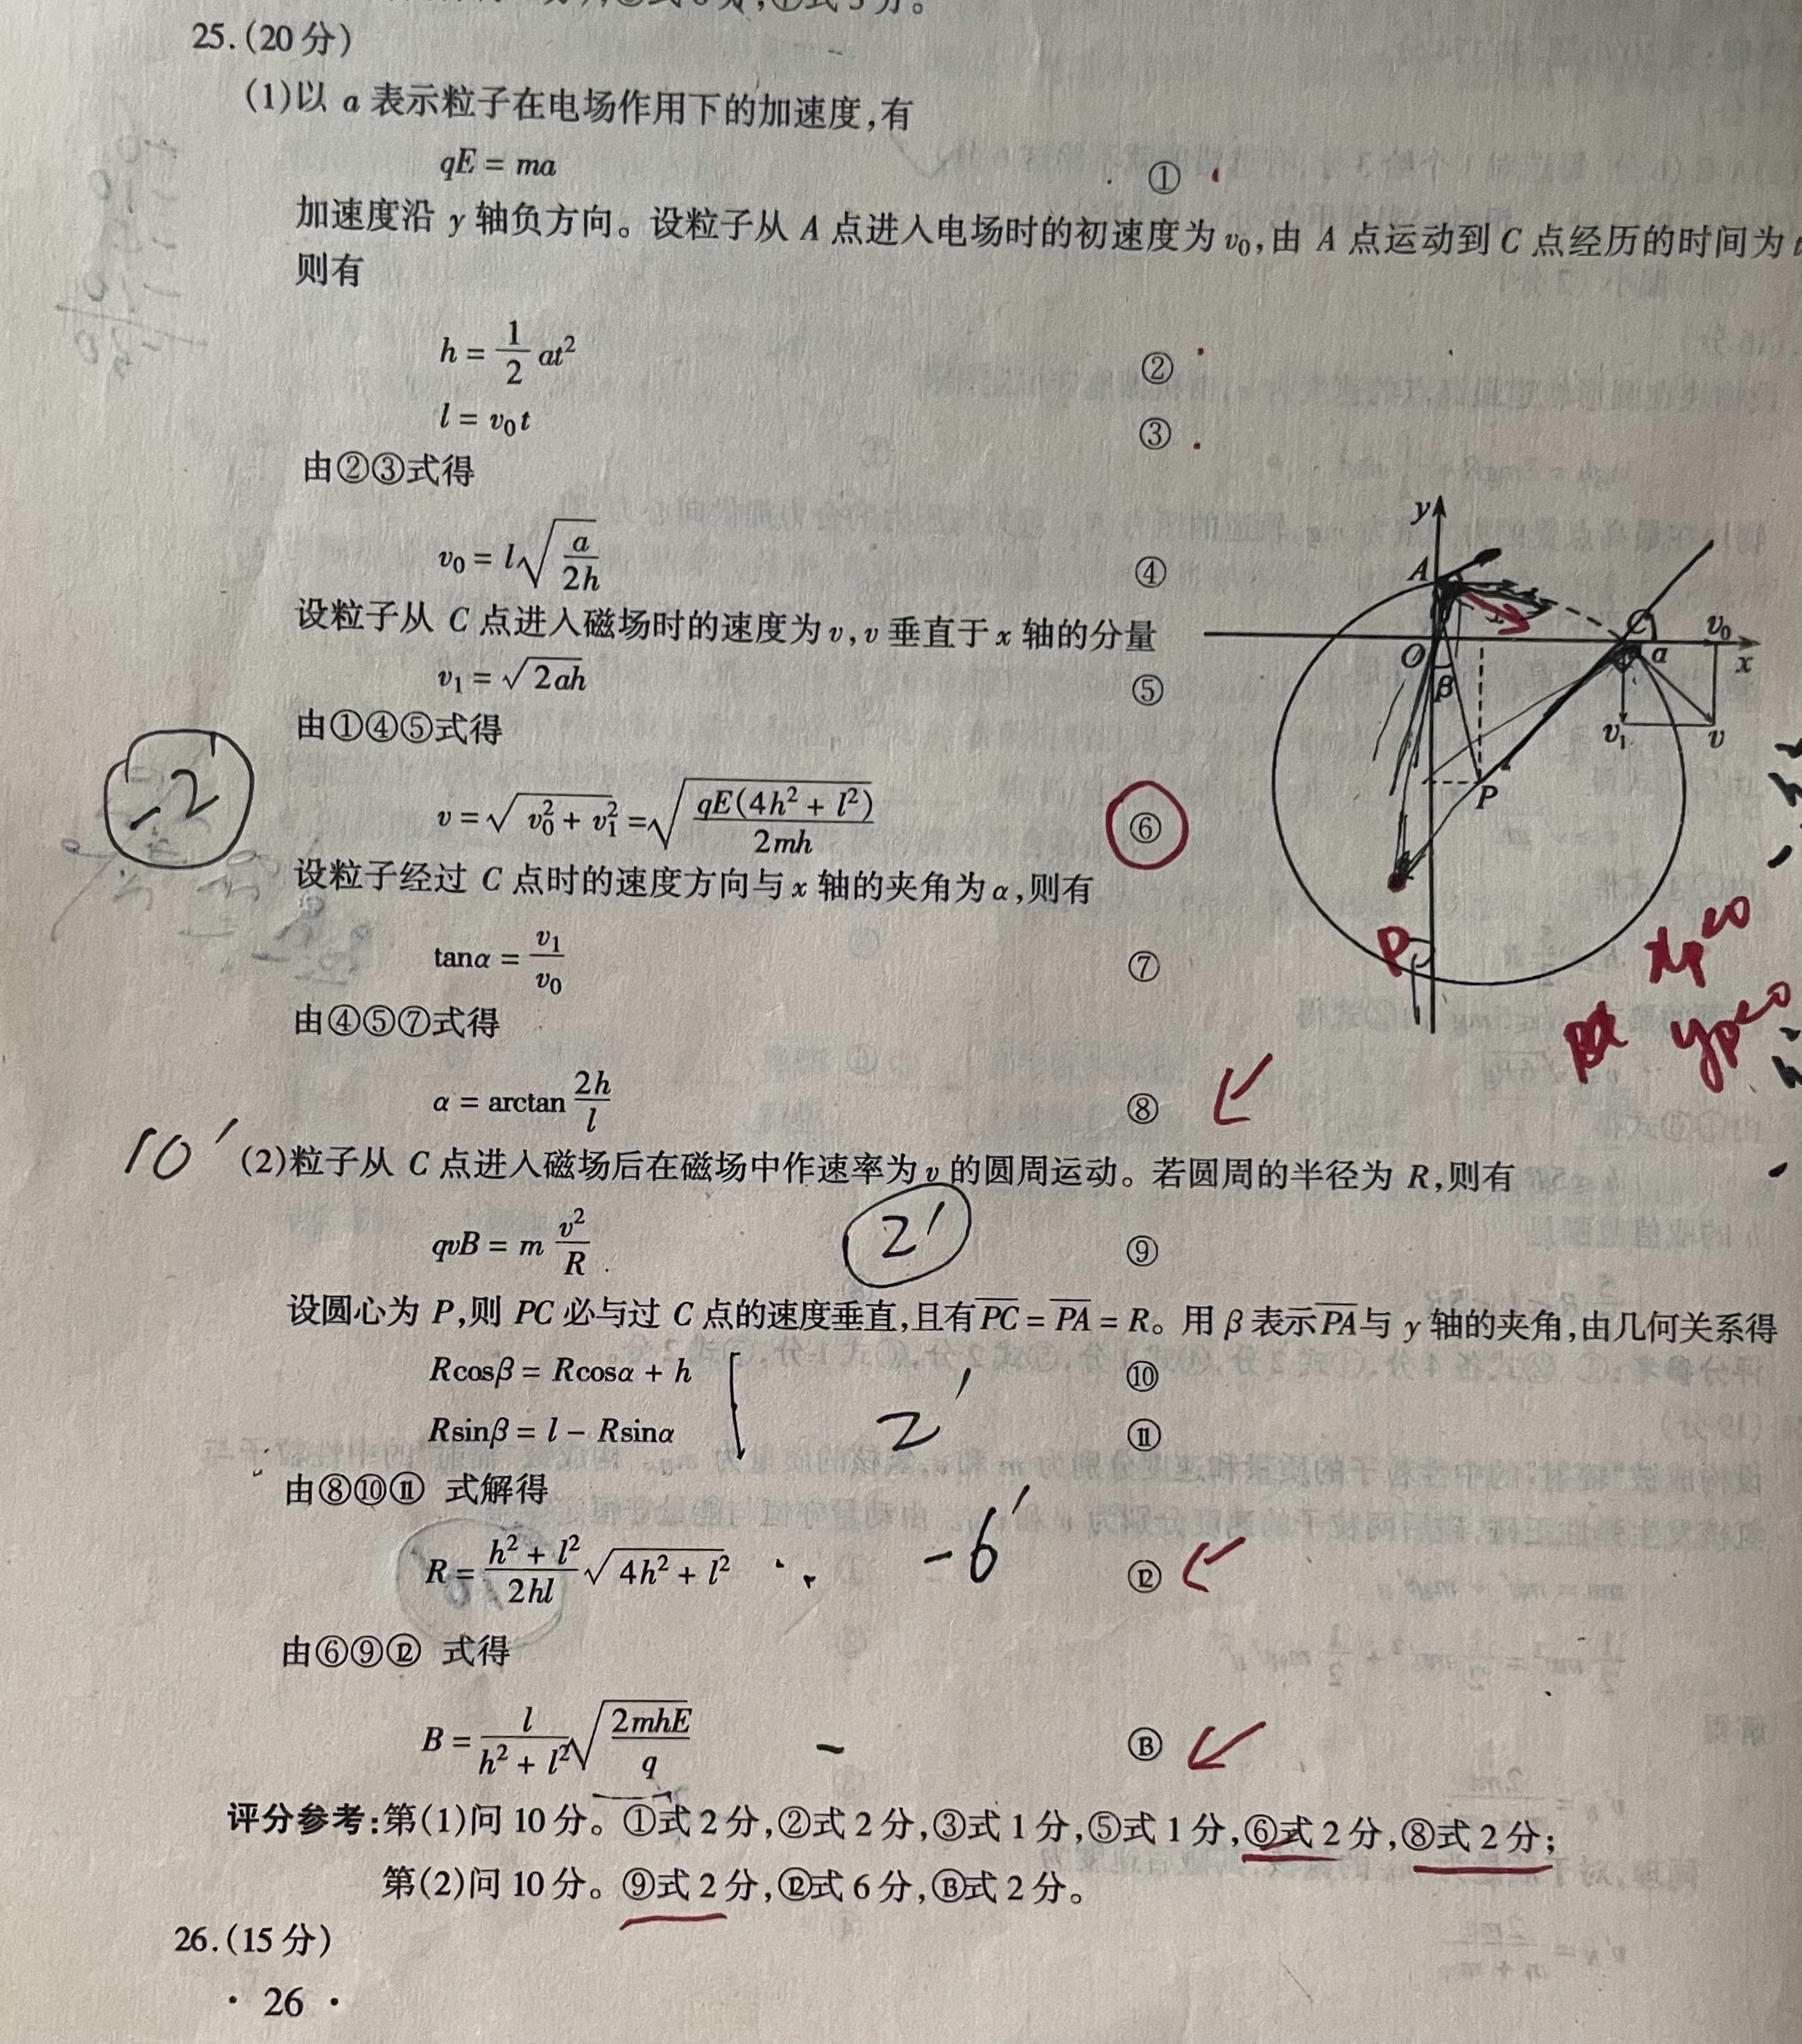 25.(20分)
(1)以 a 表示粒子在电场作用下的加速度,有
qE = ma ①
加速度沿 y 轴负方向。设粒子从 A 点进入电场时的初速度为 v₀,由 A 点运动到 C 点经历的时间为 t
则有
h = \frac{1}{2} at² ②
l = v₀t ③
由②③式得
v₀ = l\sqrt{\frac{a}{2h}} ④
设粒子从 C 点进入磁场时的速度为 v,v 垂直于 x 轴的分量
v₁ = \sqrt{2ah} ⑤
由①④⑤式得
-2
v = \sqrt{v₀² + v₁²} = \sqrt{\frac{qE(4h² + l²)}{2mh}} ⑥
设粒子经过 C 点时的速度方向与 x 轴的夹角为 α,则有
tanα = \frac{v₁}{v₀} ⑦
由④⑤⑦式得
α = arctan \frac{2h}{l} ⑧
y
A
C
v₀
O
α
x
β
v₁
v
P
P
xp<0
yp<0
10′
(2)粒子从 C 点进入磁场后在磁场中作速率为 v 的圆周运动。若圆周的半径为 R,则有
qvB = m \frac{v²}{R} 2′ ⑨
设圆心为 P,则 PC 必与过 C 点的速度垂直,且有\overline{PC} = \overline{PA} = R。用 β 表示\overline{PA}与 y 轴的夹角,由几何关系得
Rcosβ = Rcosα + h ⑩
Rsinβ = l − Rsinα 2′ ⑪
由⑧⑩⑪ 式解得
R = \frac{h² + l²}{2hl}\sqrt{4h² + l²} -6′ ⑫
由⑥⑨⑫ 式得
B = \frac{l}{h² + l²}\sqrt{\frac{2mhE}{q}} - ⑬
评分参考:第(1)问 10 分。①式 2 分,②式 2 分,③式 1 分,⑤式 1 分,⑥式 2 分,⑧式 2 分;
第(2)问 10 分。⑨式 2 分,⑫式 6 分,⑬式 2 分。
26.(15分)
· 26 ·